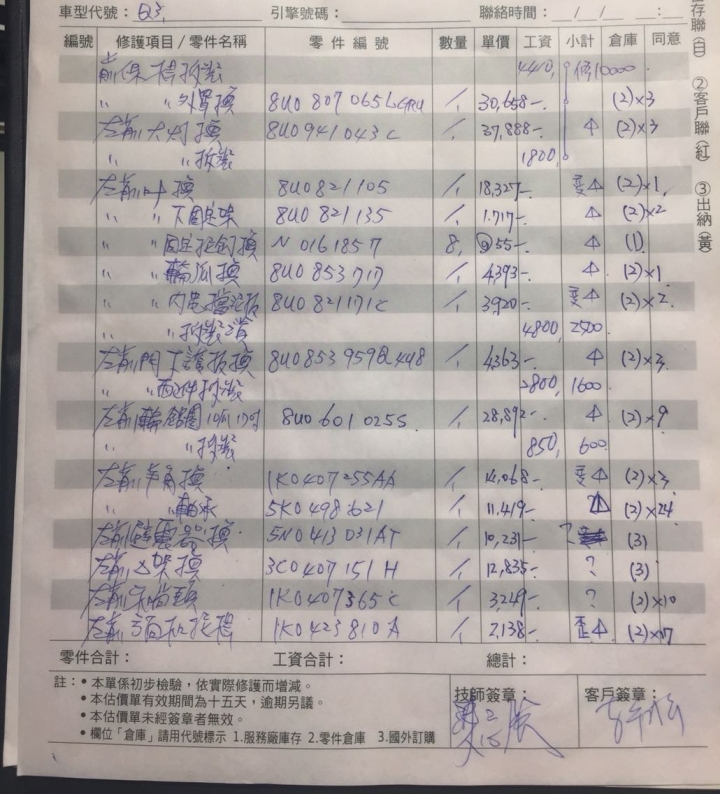 車型代號: Q3 引擎號碼: 聯絡時間: / / :
編號 修護項目/零件名稱 零件編號 數量 單價 工資 小計 倉庫 同意
前保桿拆裝 4410 修10000
〃 〃外罩換 8U0 807 065L GRU 1 30,658-. (2)×3
左前大灯換 8U0941043C 1 37,888-. (2)×3
〃 〃拆裝 1800
左前叶換 8U0821105 1 18,327-. (2)×1
〃 〃下固定架 8U0 821 135 1 1,717-. (2)×2
〃 〃固定 換 N 0161857 8 55-. (1)
〃 〃輪弧換 8U0 853 717 1 4393-. (2)×1
〃 〃內 8U0821171C 1 3920-. (2)×2
〃 〃拆裝 4800 2500
左前門下護板換 8U0853959 1 4363-. (2)×3
〃 〃配件拆裝 2800 1600
左前輪鋁圈 8U0 601 025S 1 28,892-. (2)×9
〃 〃拆裝 850 600
左前羊角換 1K0407255AA 1 14,068-. (2)×3
〃 〃軸承 5K0498621 1 11,419-. (2)×24
左前避震器換 5N0413031AT 1 10,231-. ? (3)
左前 架換 3C0407151H 1 12,835-. ? (3)
左前 1K0407365C 1 3,249-. ? (2)×10
左前方向機接桿 1K0423810A 1 2,138-. 歪 (2)×17
零件合計: 工資合計: 總計:
註:•本單係初步檢驗,依實際修護而增減。
•本估價單有效期間為十五天,逾期另議。
•本估價單未經簽章者無效。
•欄位「倉庫」請用代號標示 1.服務廠庫存 2.零件倉庫 3.國外訂購
技師簽章:
客戶簽章:
存聯(白) ②客戶聯(紅) ③出納(黃)